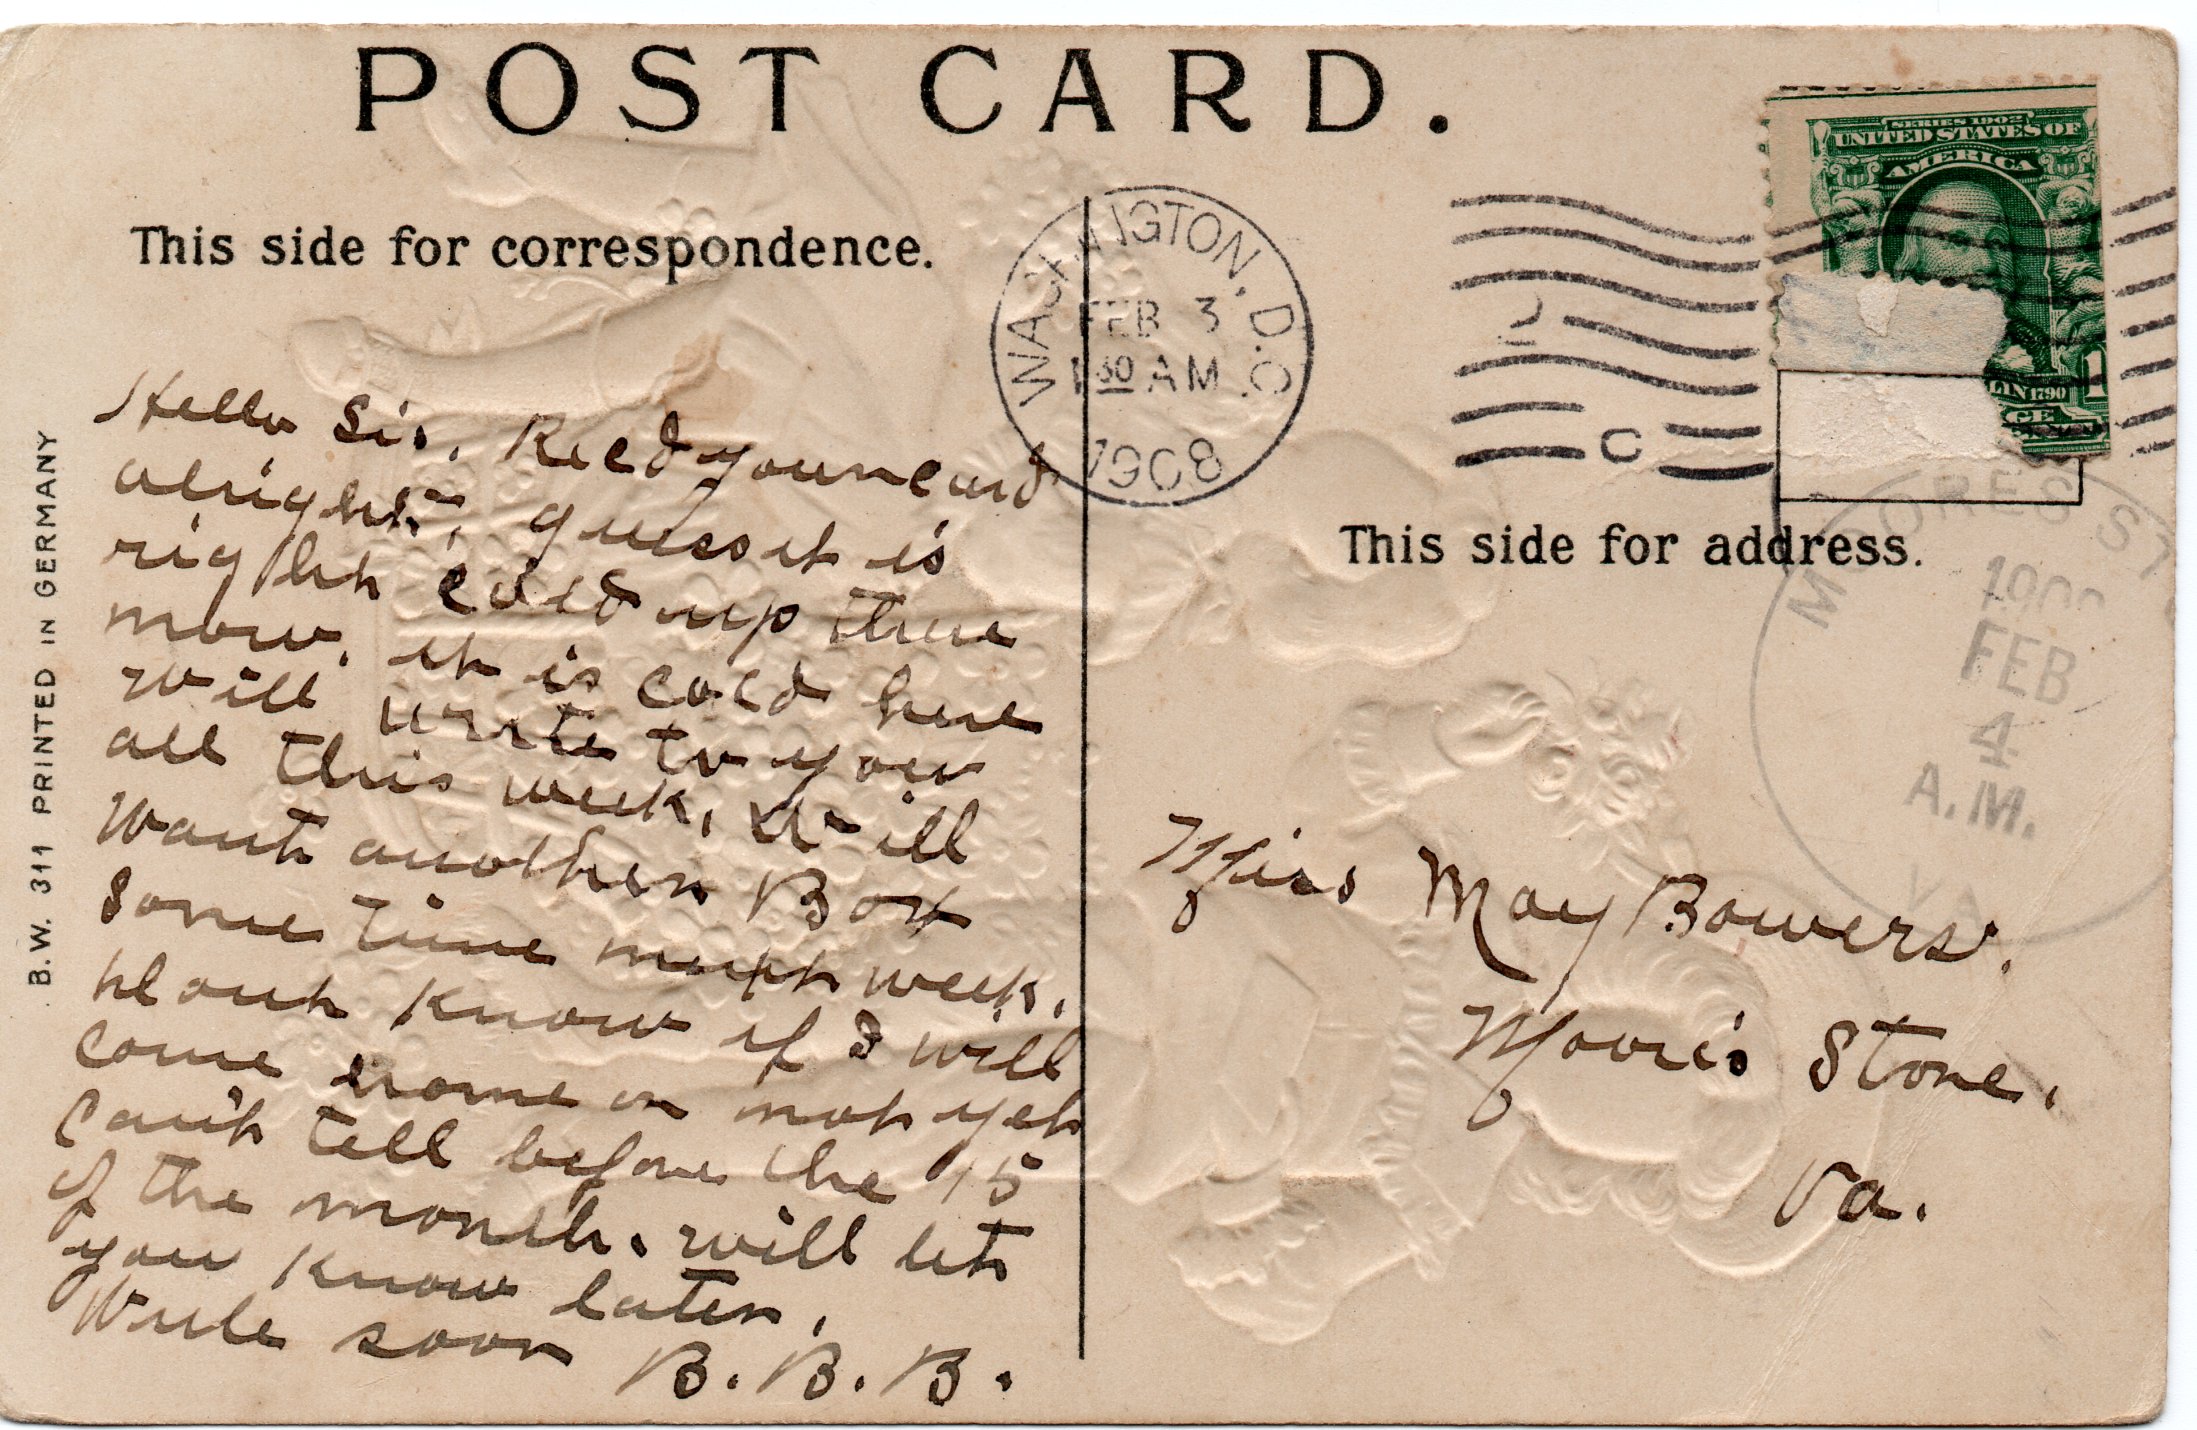 POST CARD.
This side for correspondence.
WASHINGTON, D.C.
FEB 3
1 30 AM
1908
SERIES 1902
UNITED STATES OF
AMERICA
LIN 1790
1
This side for address.
MOORES ST
FEB
4
A.M.
VA
B.W. 311 PRINTED IN GERMANY
Hello Sis. Recd your card
alright, guess it is
right cold up there
now. it is cold here
Will write to you
all this week, Will
Want another Box
Some time next week.
dont Know if I will
come home or not yet
Can't tell before the 15
of the month. will let
you Know later,
Write soon B. B. B.
Miss May Bowers.
Moore's Stone.
Va.